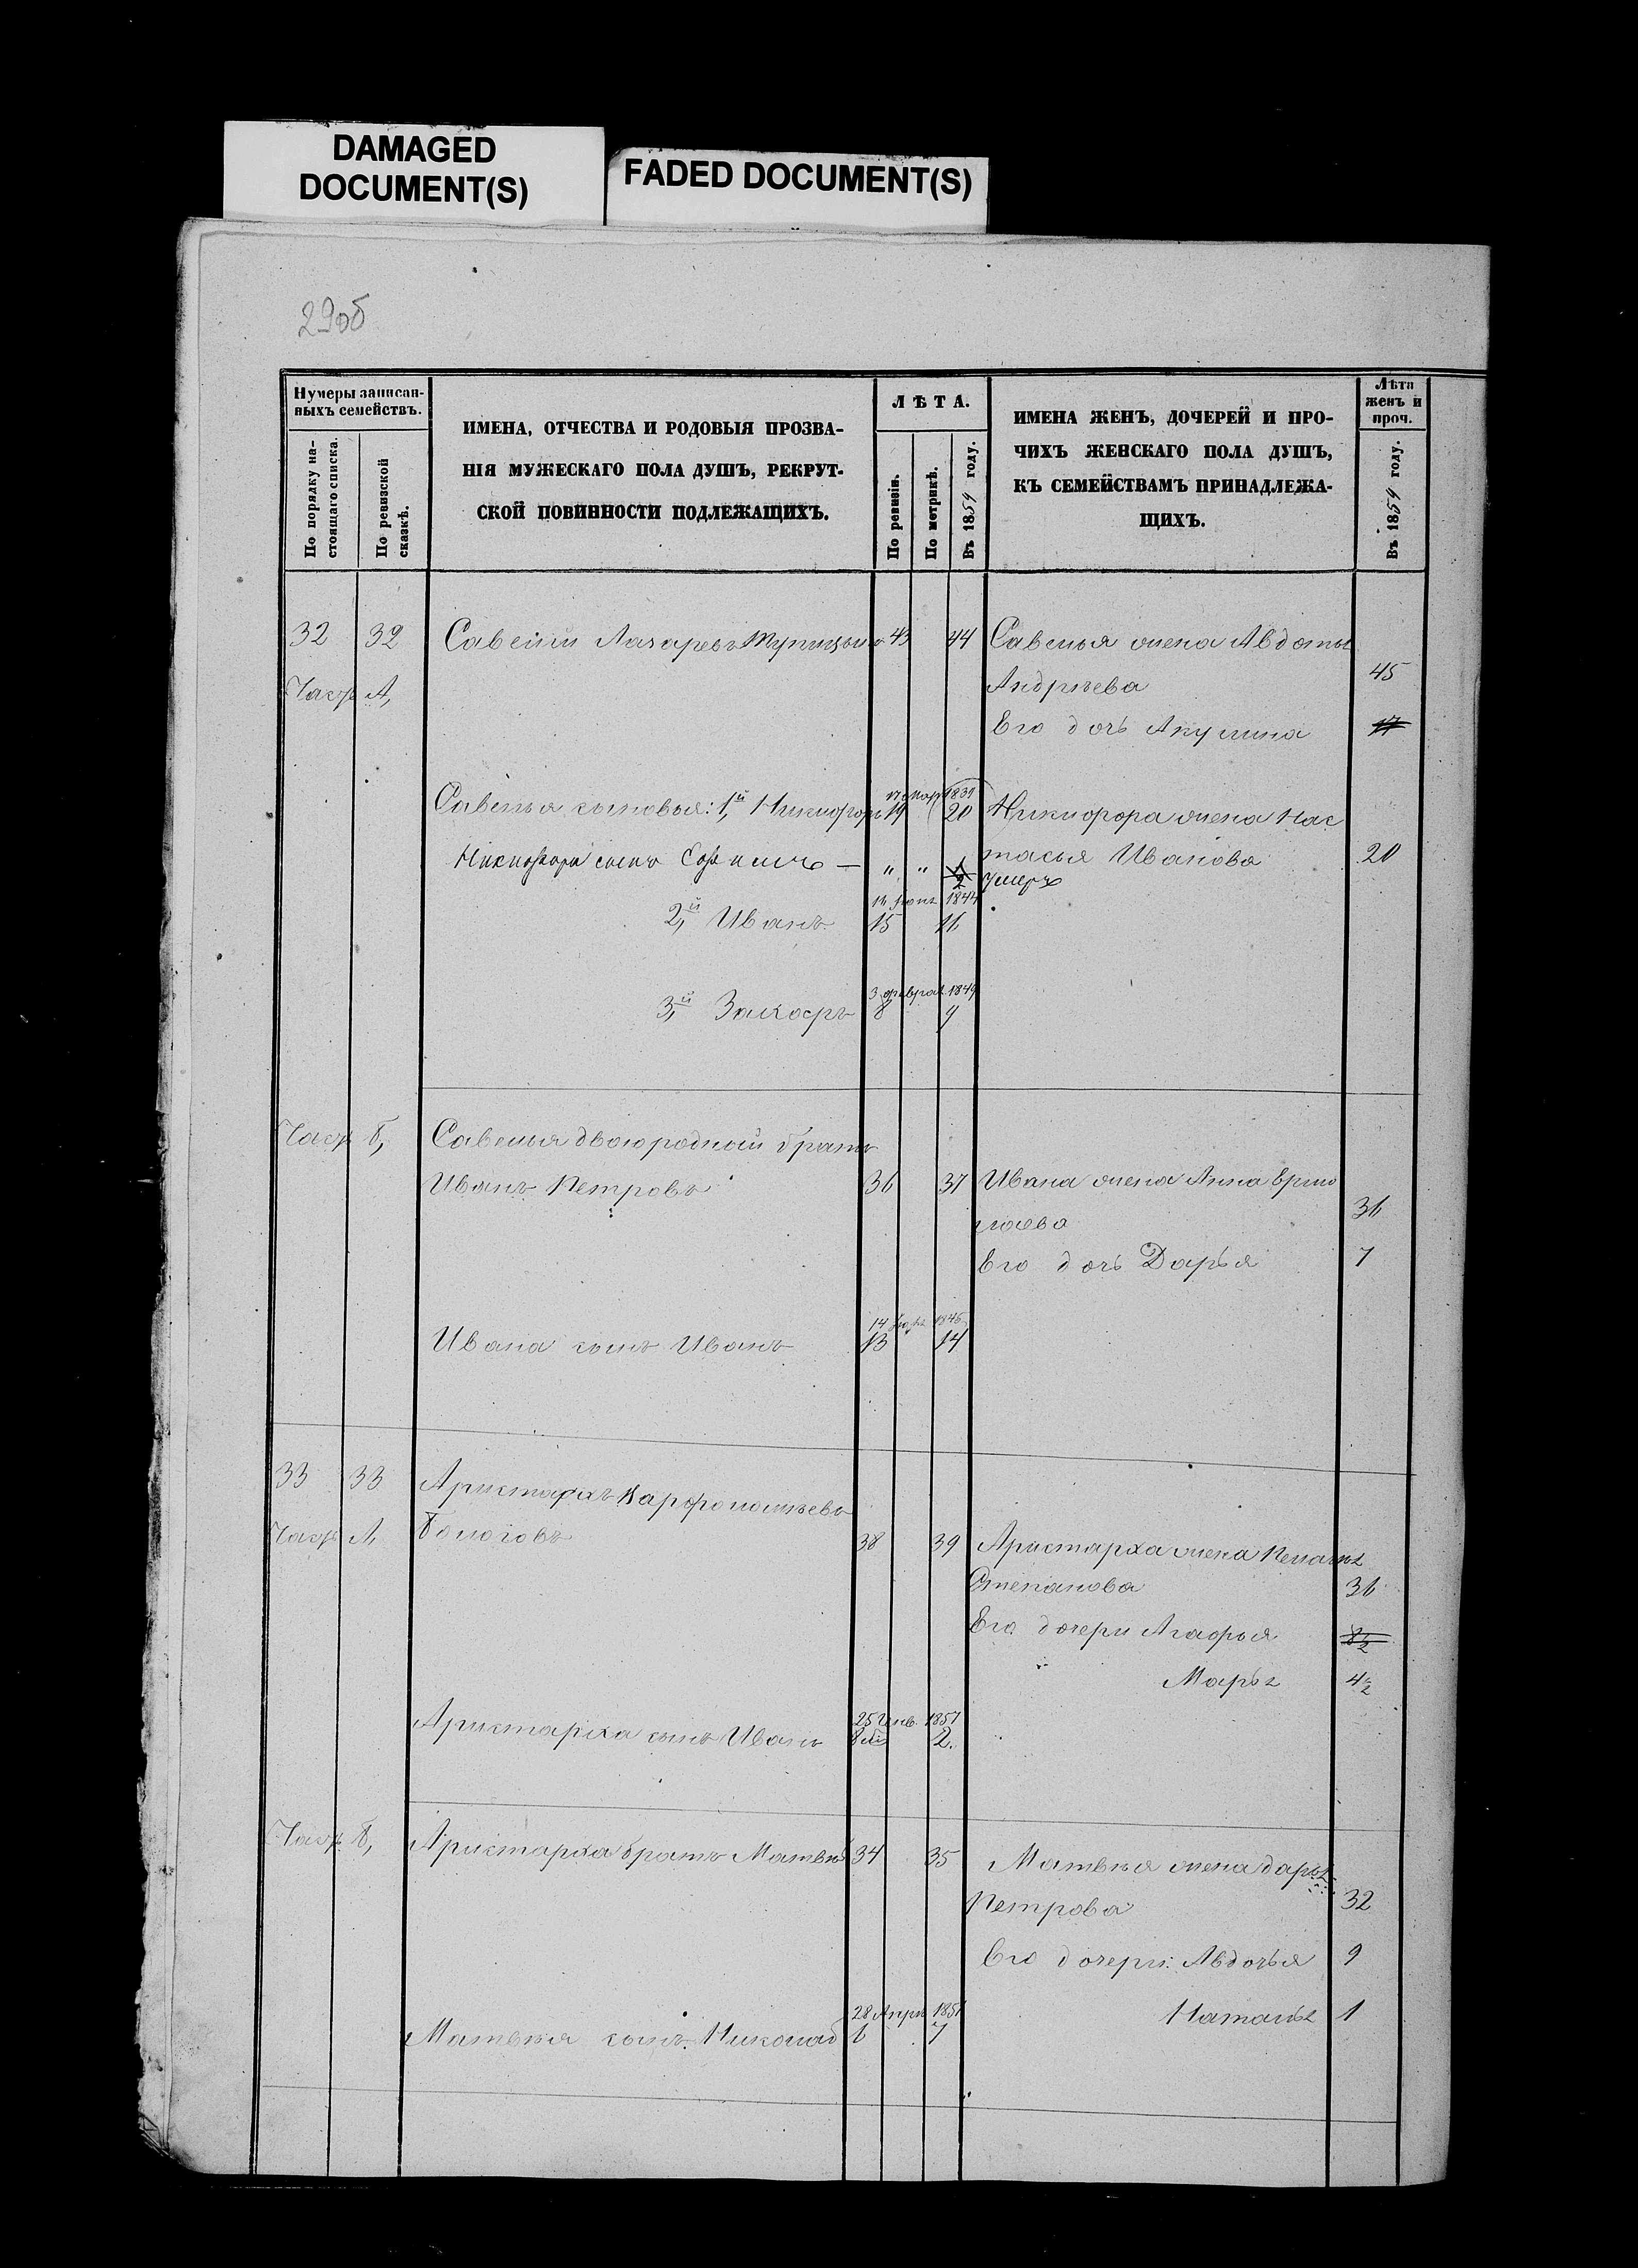 DAMAGED
DOCUMENT(S)
FADED DOCUMENT(S)
29об
Нумеры записан-
ныхъ семействъ.
По порядку на-
стоящаго списка.
По ревизской
сказкѣ.
ИМЕНА, ОТЧЕСТВА И РОДОВЫЯ ПРОЗВА-
НІЯ МУЖЕСКАГО ПОЛА ДУШЪ, РЕКРУТ-
СКОЙ ПОВИННОСТИ ПОДЛЕЖАЩИХЪ.
ЛѢТА.
По ревизіи.
По метрикѣ.
Въ 1859 году.
ИМЕНА ЖЕНЪ, ДОЧЕРЕЙ И ПРО-
ЧИХЪ ЖЕНСКАГО ПОЛА ДУШЪ,
КЪ СЕМЕЙСТВАМЪ ПРИНАДЛЕЖА-
ЩИХЪ.
Лѣта
женъ и
проч.
Въ 1859 году.
32 32 Савелій Лазаревъ 43 44 Савелья жена Авдотья
Част А, Андрѣева 45
Его дочь Акулина 17
1839
Савелья сыновья: 1й Никифоръ 19 20 Никифора жена Нас
Никифора сынъ — " " 1/2 тасья Иванова 20
Умеръ
1844
2й Иванъ 15 16
3 феврал 1849
3й Захаръ 8 9
Част б, Савелья двоюродный братъ
Иванъ Петровъ 36 37 Ивана жена Анна Ермо
лаева 36
Его дочь Дарья 7
14 1845
Ивана сынъ Иванъ 13 14
33 33 Аристархъ Варфоломѣевъ
Част А Бологовъ 38 39 Аристарха жена Пелагея
Степанова 36
Его дочери Агафья 8 1/2
Марья 4 1/2
25 Янв. 1857
Аристарха сынъ Иванъ 2.
Част б, Аристарха братъ Матвѣй 34 35 Матвѣя жена Дарья
Петрова 32
Его дочери: Авдотья 9
28 Апрѣ 1851 Наталья 1
Матвѣя сынъ Николай 6 7